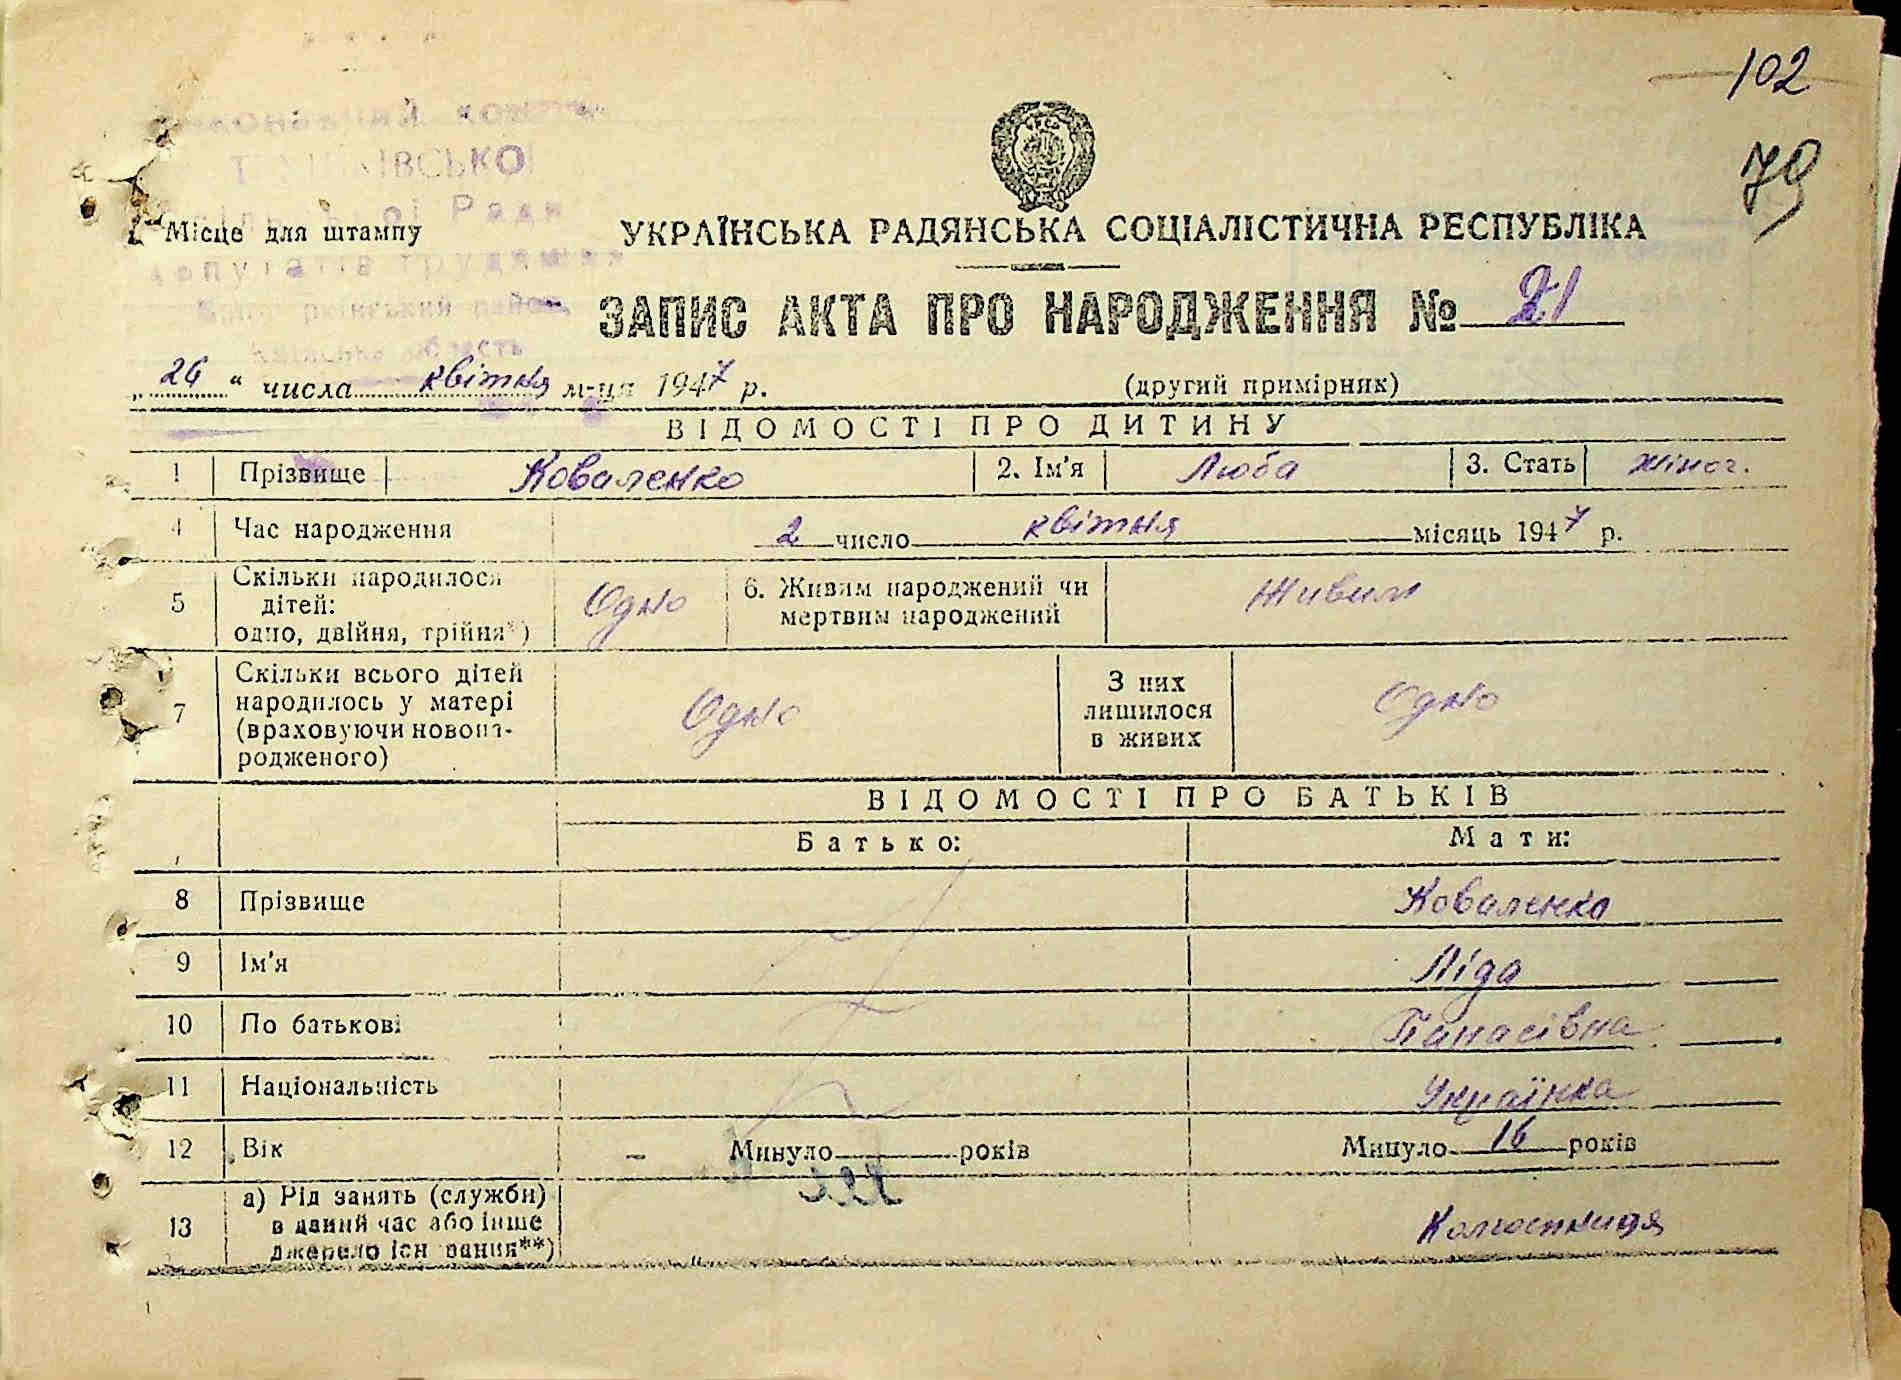 102
79
ВСЬКО
Рад
Місце для штампу
УКРАЇНСЬКА РАДЯНСЬКА СОЦІАЛІСТИЧНА РЕСПУБЛІКА
ЗАПИС АКТА ПРО НАРОДЖЕННЯ № 21
„ 26 “ числа квітня м-ця 1947 р. (другий примірник)
ВІДОМОСТІ ПРО ДИТИНУ
1 Прізвище Коваленко 2. Ім'я Люба 3. Стать жіноч.
4 Час народження 2 число квітня місяць 1947 р.
5 Скільки народилося дітей: одно, двійня, трійня*) Одно 6. Живим народжений чи мертвим народжений Живим
7 Скільки всього дітей народилось у матері (враховуючи новона-родженого) Одно З них лишилося в живих Одно
ВІДОМОСТІ ПРО БАТЬКІВ
Батько: Мати:
8 Прізвище Коваленко
9 Ім'я Ліда
10 По батькові Панасівна
11 Національність Українка
12 Вік – Минуло років Минуло 16 років
13 а) Рід занять (служби) в даний час або інше джерело існування**) Колгоспниця